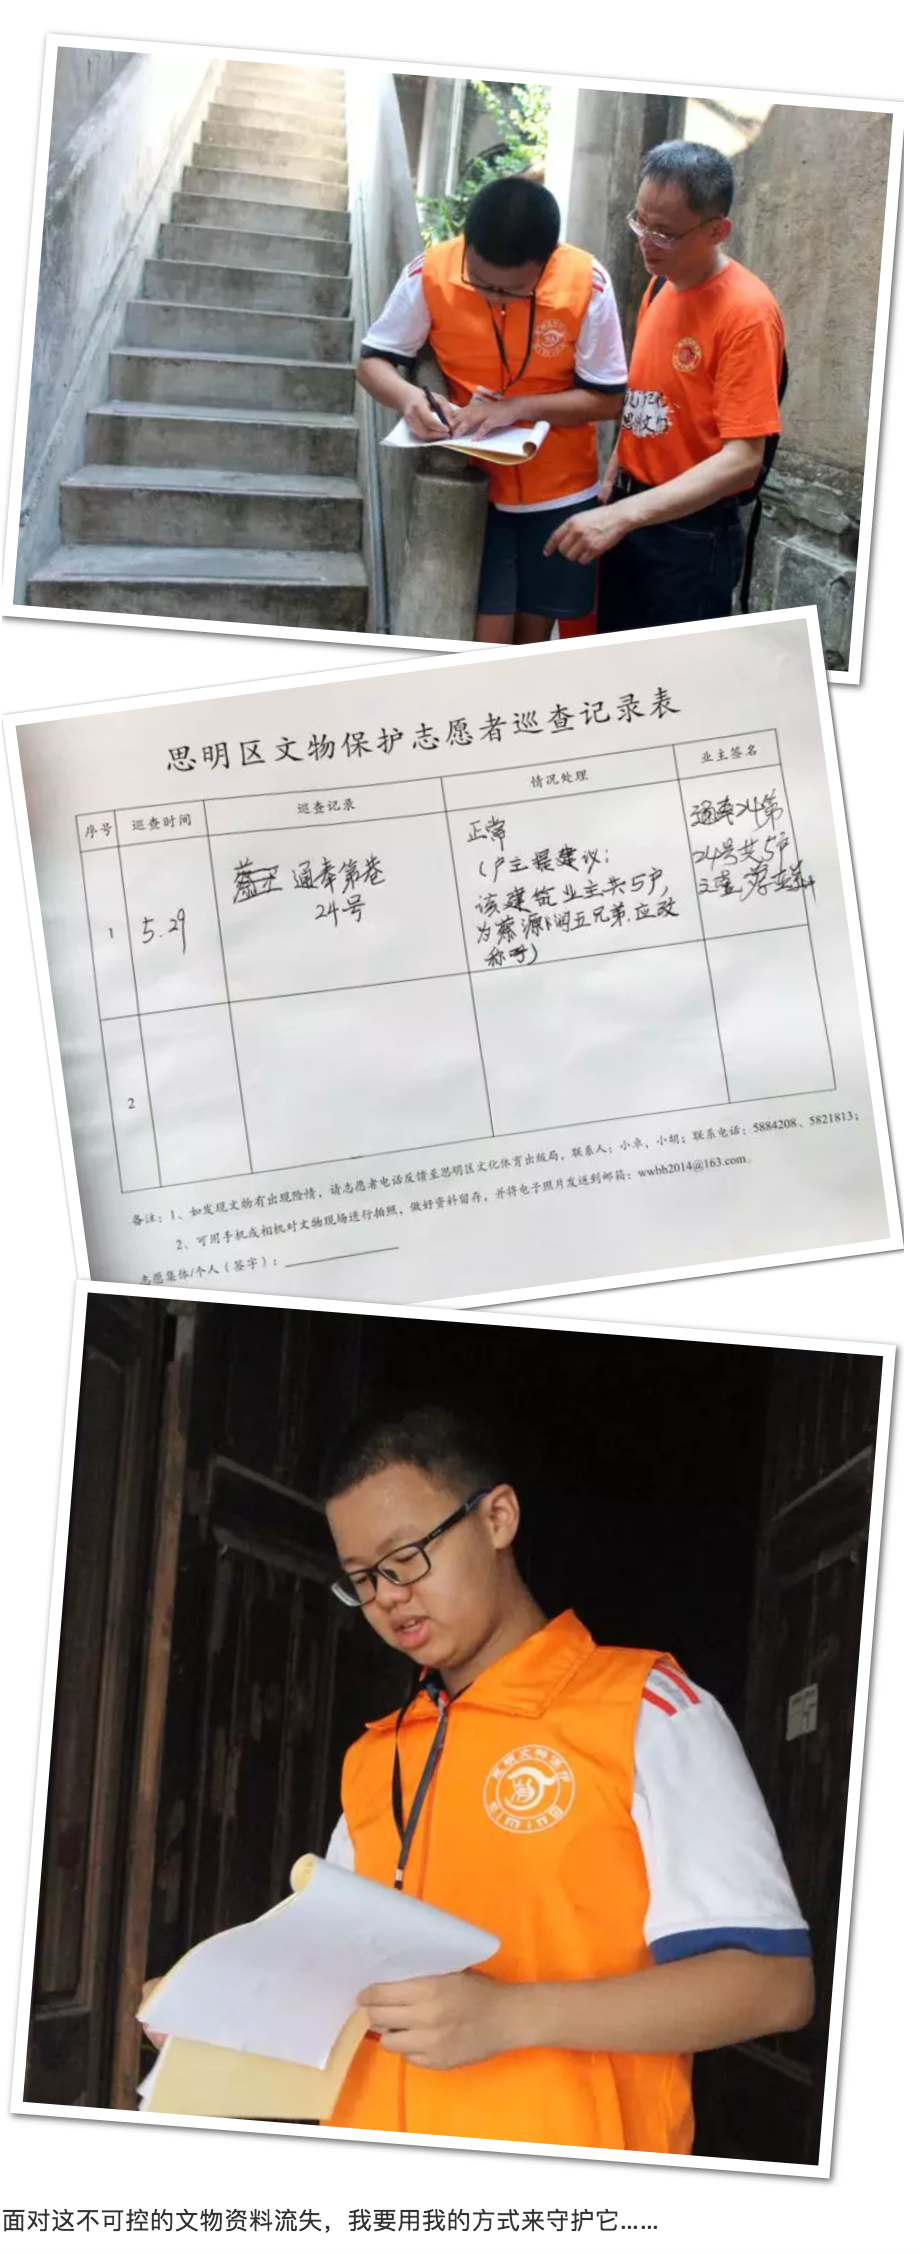 思明区文物保护志愿者巡查记录表
序号 巡查时间 巡查记录 情况处理 业主签名
1 5.29
通奉第巷
24号
正常
(户主提建议:
该建筑业主共5户,
为蔡源润五兄弟.应改
称呼)
通奉24第
24号共5户
2
备注:1、如发现文物有出现险情,请志愿者电话反馈至思明区文化体育出版局,联系人:小卓,小胡;联系电话:5884208、5821813;
2、可用手机或相机对文物现场进行拍照,做好资料留存,并将电子照片发送到邮箱:wwbh2014@163.com。
志愿集体/个人(签字):
面对这不可控的文物资料流失,我要用我的方式来守护它……